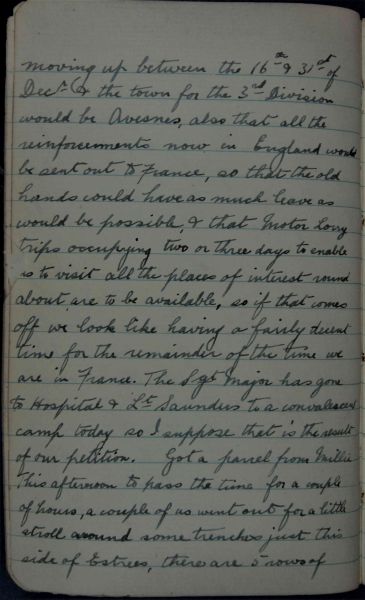 moving up between the 16th & 31st of
Decr. & the town for the 3rd Division
would be Avesnes, also that all the
reinforcements now in England would
be sent out to France, so that the old
hands could have as much leave as
would be possible, & that Motor Lorry
trips occupying two or three days to enable
us to visit all the places of interest round
about, are to be available, so if that comes
off we look like having a fairly decent
time for the remainder of the time we
are in France. The Sgt Major has gone
to Hospital & Lt Saunders to a convalescent
camp today so I suppose that is the result
of our petition. Got a parcel from Millie
This afternoon to pass the time for a couple
of hours, a couple of us went out for a little
stroll around some trenches just this
side of Estrees, there are 5 rows of